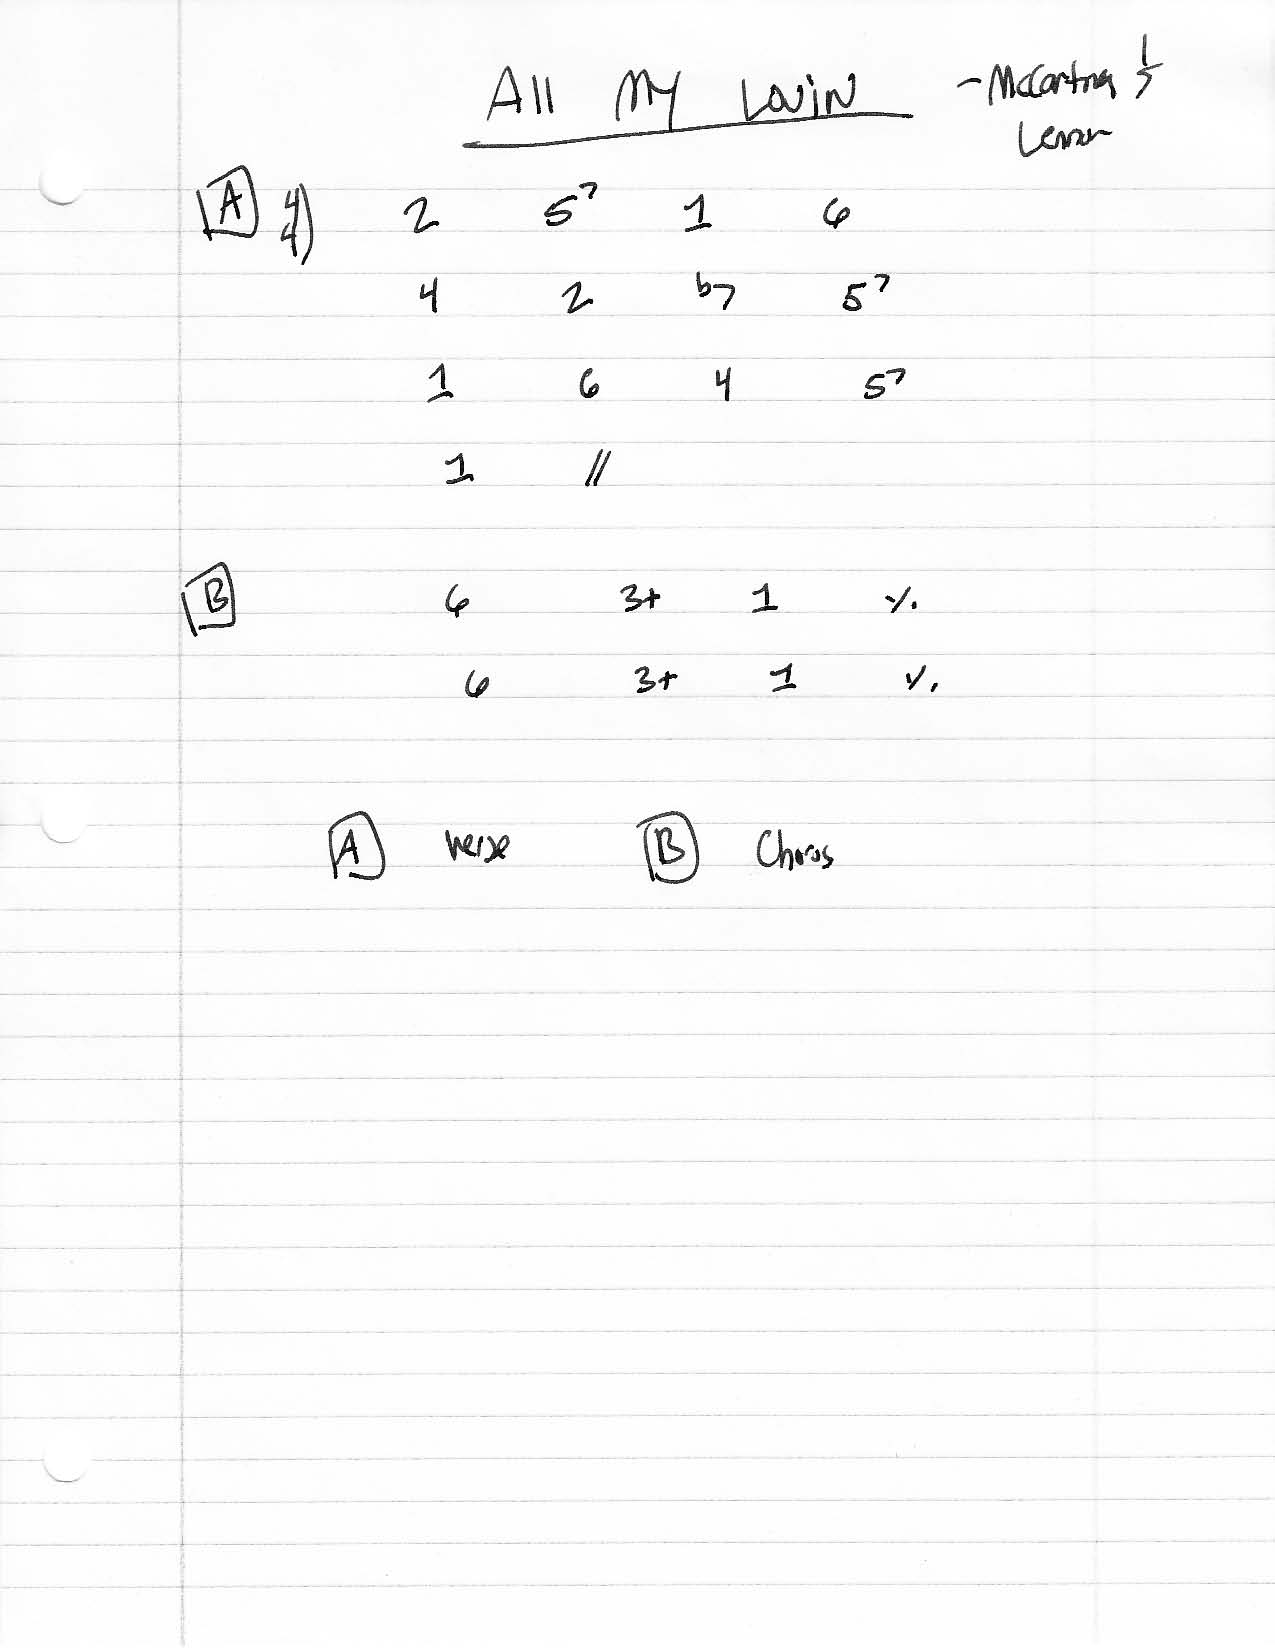 All My Lovin - McCartney &
Lennon
A 4/4) 2 5⁷ 1 6
4 2 b7 5⁷
1 6 4 5⁷
1 //
B 6 3+ 1 ٪
6 3+ 1 ٪
A verse B Chorus